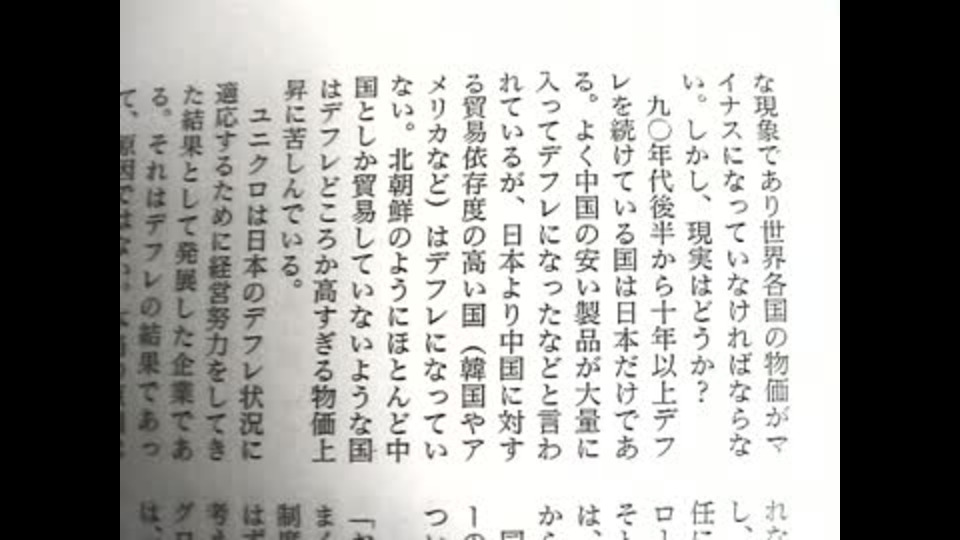 な現象であり世界各国の物価がマ
イナスになっていなければならな
い。しかし、現実はどうか？
九〇年代後半から十年以上デフ
レを続けている国は日本だけであ
る。よく中国の安い製品が大量に
入ってデフレになったなどと言わ
れているが、日本より中国に対す
る貿易依存度の高い国（韓国やア
メリカなど）はデフレになってい
ない。北朝鮮のようにほとんど中
国としか貿易していないような国
はデフレどころか高すぎる物価上
昇に苦しんでいる。
ユニクロは日本のデフレ状況に
適応するために経営努力をしてき
た結果として発展した企業であ
る。それはデフレの結果であっ
て、原因ではない。
れな
し、
任に
ロー
そと
は、
から
ーの
つい
まく
制度
はず
考え
グロ
は、